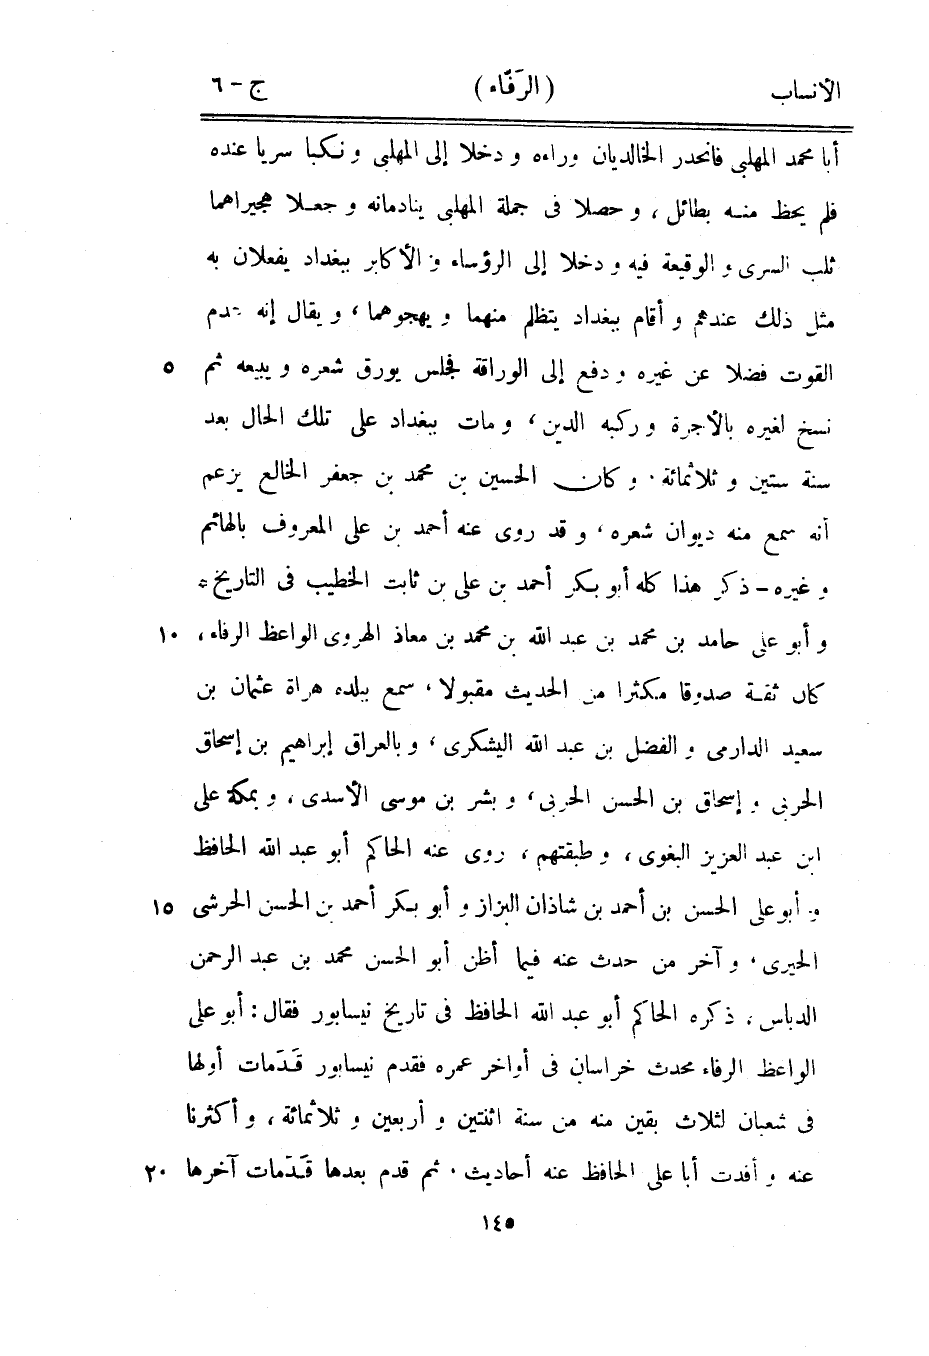 الأنساب (الرَفّاء) ج - ٦
أبا محمد المهلبى فانحدر الخالديان وراءه و دخلا إلى المهلبى و نكبا سريا عنده
فلم يحظ منه بطائل، و حصلا فى جملة المهلبى ينادمانه و جعلا هجيراهما
ثلب السرى و الوقيعة فيه و دخلا إلى الرؤساء و الأكابر ببغداد يفعلان به
مثل ذلك عندهم و أقام ببغداد يتظلم منهما و يهجوهما، و يقال إنه عدم
القوت فضلا عن غيره و دفع إلى الوراقة فجلس يورق شعره و يبيعه ثم ٥
نسخ لغيره بالأجرة و ركبه الدين، و مات ببغداد على تلك الحال بعد
سنة ستين و ثلاثمائة. و كان الحسين بن محمد بن جعفر الخالع يزعم
أنه سمع منه ديوان شعره، و قد روى عنه أحمد بن على المعروف بالهائم
و غيره - ذكر هذا كله أبو بكر أحمد بن على بن ثابت الخطيب فى التاريخ *
و أبو على حامد بن محمد بن عبد الله بن محمد بن معاذ الهروى الواعظ الرفاء، ١٠
كان ثقة صدوقا مكثرا من الحديث مقبولا، سمع ببلده هراة عثمان بن
سعيد الدارمى و الفضل بن عبد الله اليشكرى، و بالعراق إبراهيم بن إسحاق
الحربى و إسحاق بن الحسن الحربى، و بشر بن موسى الأسدى، و بمكة على
ابن عبد العزيز البغوى، و طبقتهم، روى عنه الحاكم أبو عبد الله الحافظ
و أبو على الحسن بن أحمد بن شاذان البزاز و أبو بكر أحمد بن الحسن الحرشى ١٥
الحيرى، و آخر من حدث عنه فيما أظن أبو الحسن محمد بن عبد الرحمن
الدباس، ذكره الحاكم أبو عبد الله الحافظ فى تاريخ نيسابور فقال: أبو على
الواعظ الرفاء محدث خراسان فى أواخر عمره فقدم نيسابور قَدَمات أولها
فى شعبان لثلاث بقين منه من سنة اثنتين و أربعين و ثلاثمائة، و أكثرنا
عنه و أفدت أبا على الحافظ عنه أحاديث. ثم قدم بعدها قَدَمات آخرها ٢٠
١٤٥